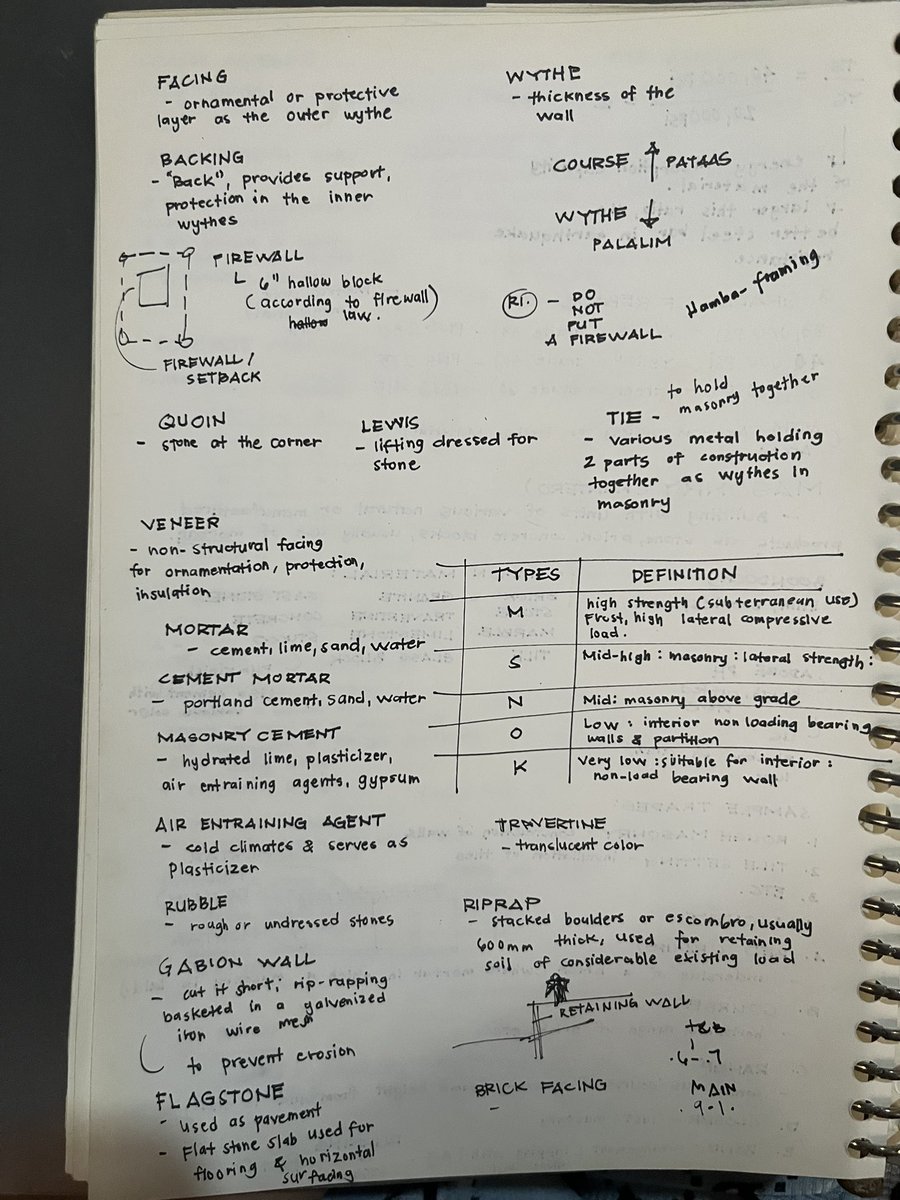 FACING
- ornamental or protective
layer as the outer wythe
WYTHE
- thickness of the
wall
BACKING
- "Back", provides support,
protection in the inner
wythes
COURSE ↑ PATAAS
WYTHE ↓
PALALIM
FIREWALL
6" hallow block
(according to firewall)
hallow law.
FIREWALL /
SETBACK
R1. - DO
NOT
PUT
A FIREWALL
Hamba - framing
QUOIN
- stone at the corner
LEWIS
- lifting dressed for
stone
TIE - to hold
masonry together
- various metal holding
2 parts of construction
together as wythes in
masonry
VENEER
- non-structural facing
for ornamentation, protection,
insulation
MORTAR
- cement, lime, sand, water
CEMENT MORTAR
- portland cement, sand, water
MASONRY CEMENT
- hydrated lime, plasticizer,
air entraining agents, gypsum
TYPES DEFINITION
M high strength (subterranean use)
Frost, high lateral compressive
load.
S Mid-high : masonry : lateral strength :
N Mid: masonry above grade
O Low : interior non loading bearing
walls & partition
K Very low : suitable for interior :
non-load bearing wall
AIR ENTRAINING AGENT
- cold climates & serves as
plasticizer
TRAVERTINE
- translucent color
RUBBLE
- rough or undressed stones
RIPRAP
- stacked boulders or escombro, usually
600mm thick, used for retaining
soil of considerable existing load
GABION WALL
- cut it short; rip-rapping
basketed in a galvanized
iron wire mesh
to prevent erosion
RETAINING WALL
T&B
.6-.7
FLAGSTONE
- used as pavement
- Flat stone slab used for
flooring & horizontal
surfacing
BRICK FACING
-
MAIN
.9-1.